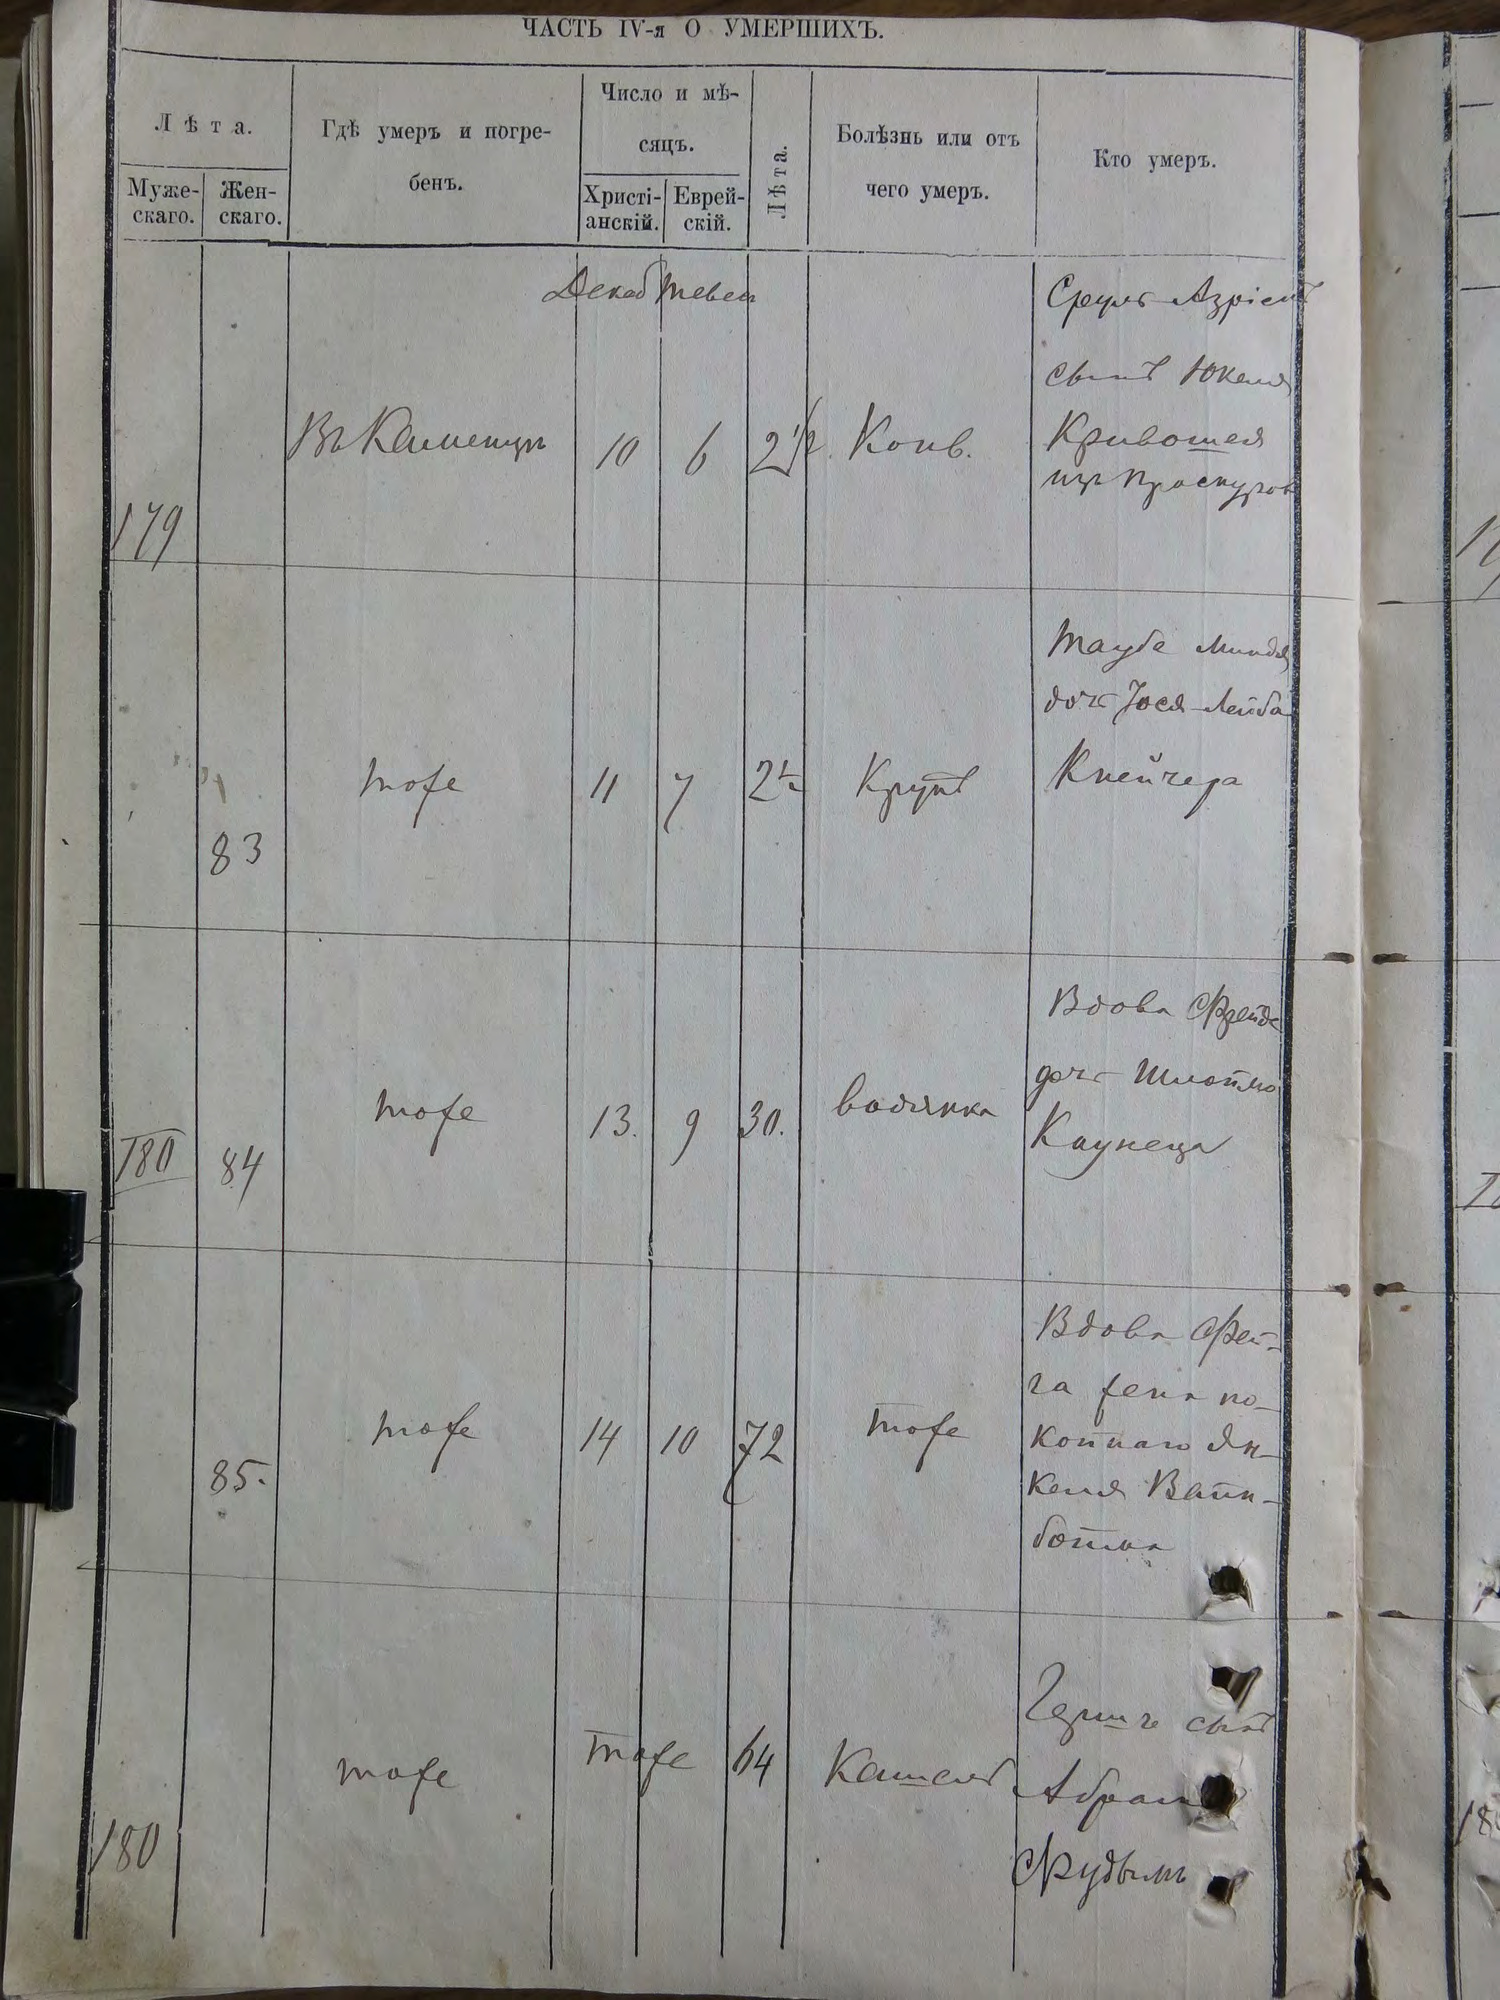 ЧАСТЬ IV-я О УМЕРШИХЪ.
Лѣта.
Муже-
скаго.
Жен-
скаго.
Гдѣ умеръ и погре-
бенъ.
Число и мѣ-
сяцъ.
Христі-
анскій.
Еврей-
скій.
Лѣта.
Болѣзнь или отъ
чего умеръ.
Кто умеръ.
Декаб Тевет
179
Въ Каменцѣ
10
6
2 1/2
Конв.
Сруль Азріель
сынъ Юкеля
Кривошея
изъ Проскуров
83
тоже
11
7
2 1/2
Крупъ
Таубе Миндля
дочь Іося-Лейба
Кнейчера
180
84
тоже
13.
9
30.
водянка
Вдова Фрейда
дочь Шлоймо
Каунеца
85.
тоже
14
10
72
тоже
Вдова Фей-
га жена по-
койнаго Ян-
келя Вайн-
бойма
180
тоже
тоже
64
Кашель
Герш сынъ
Абрам
Фудымъ